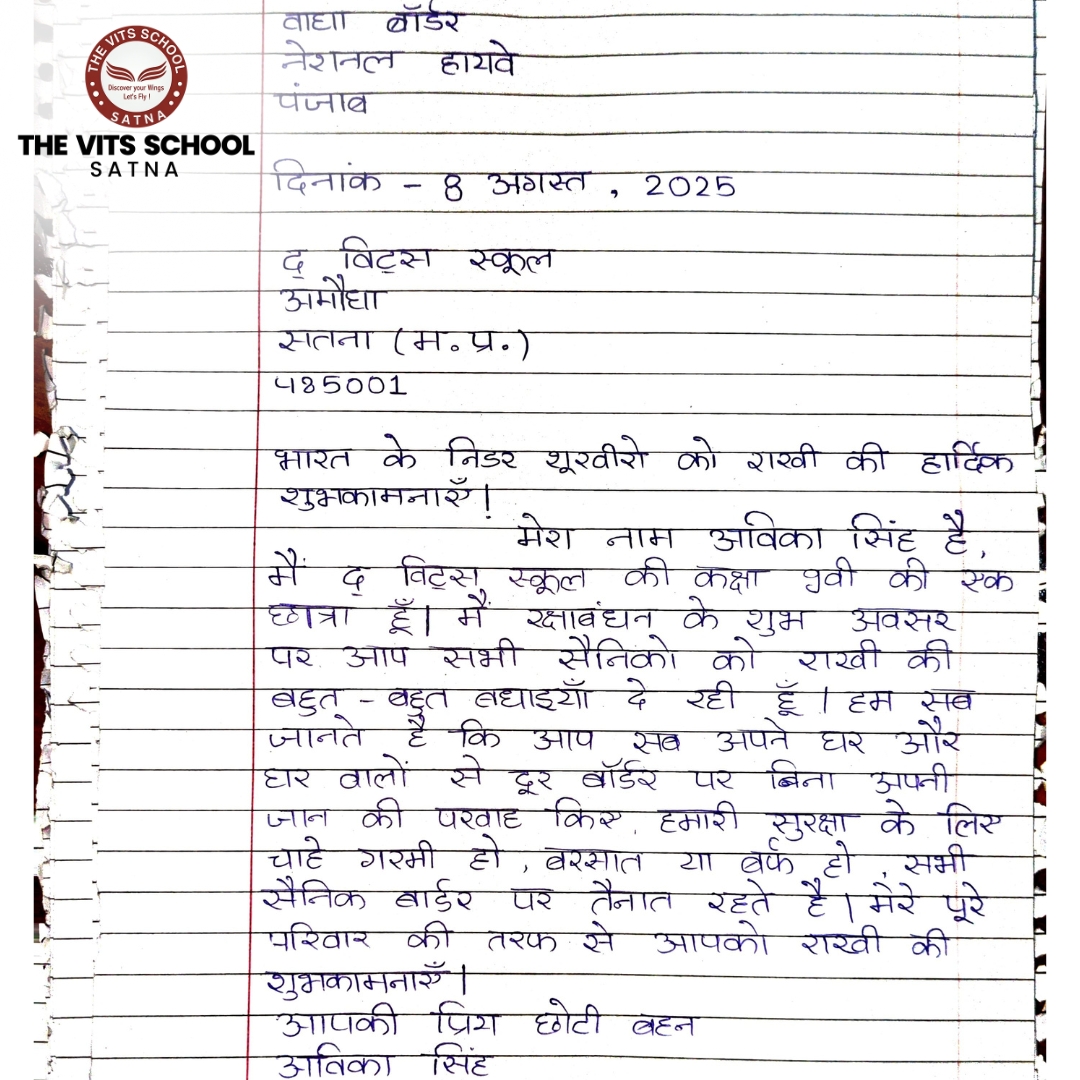 THE VITS SCHOOL
Discover your Wings
Let's Fly !
SATNA
THE VITS SCHOOL
SATNA
वाघा बॉर्डर
नेशनल हायवे
पंजाब
दिनांक - 8 अगस्त , 2025
द् विट्स स्कूल
अमौधा
सतना (म॰प्र॰)
485001
भारत के निडर शूरवीरो को राखी की हार्दिक
शुभकामनाएँ!
मेरा नाम अविका सिंह है,
मैं द् विट्स स्कूल की कक्षा 9वी की एक
छात्रा हूँ। मैं रक्षाबंधन के शुभ अवसर
पर आप सभी सैनिको को राखी की
बहुत - बहुत बधाइयाँ दे रही हूँ। हम सब
जानते है कि आप सब अपने घर और
घर वालों से दूर बॉर्डर पर बिना अपनी
जान की परवाह किए, हमारी सुरक्षा के लिए
चाहे गरमी हो, बरसात या बर्फ हो, सभी
सैनिक बार्डर पर तैनात रहते है। मेरे पूरे
परिवार की तरफ से आपको राखी की
शुभकामनाएँ।
आपकी प्रिय छोटी बहन
अविका सिंह